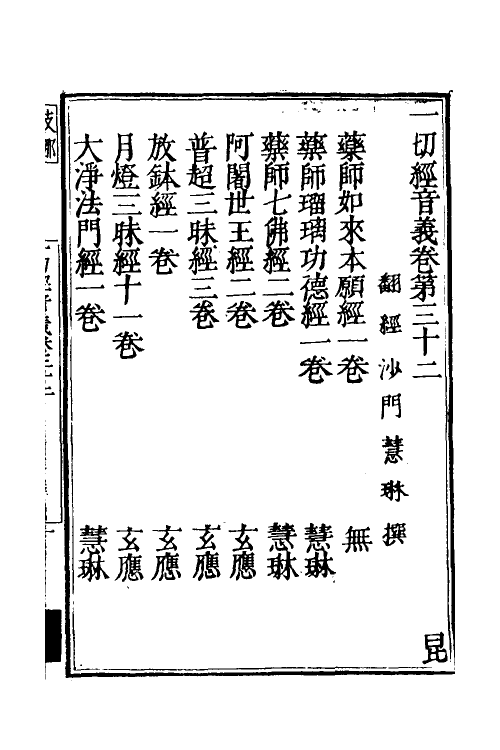 一切經音義卷第三十二
昆
翻經沙門慧琳撰
藥師如來本願經一卷 無
藥師瑠璃功德經一卷 慧琳
藥師七佛經二卷 慧琳
阿闍世王經二卷 玄應
普超三昧經三卷 玄應
放鉢經一卷 玄應
月燈三昧經十一卷 玄應
大淨法門經一卷 慧琳